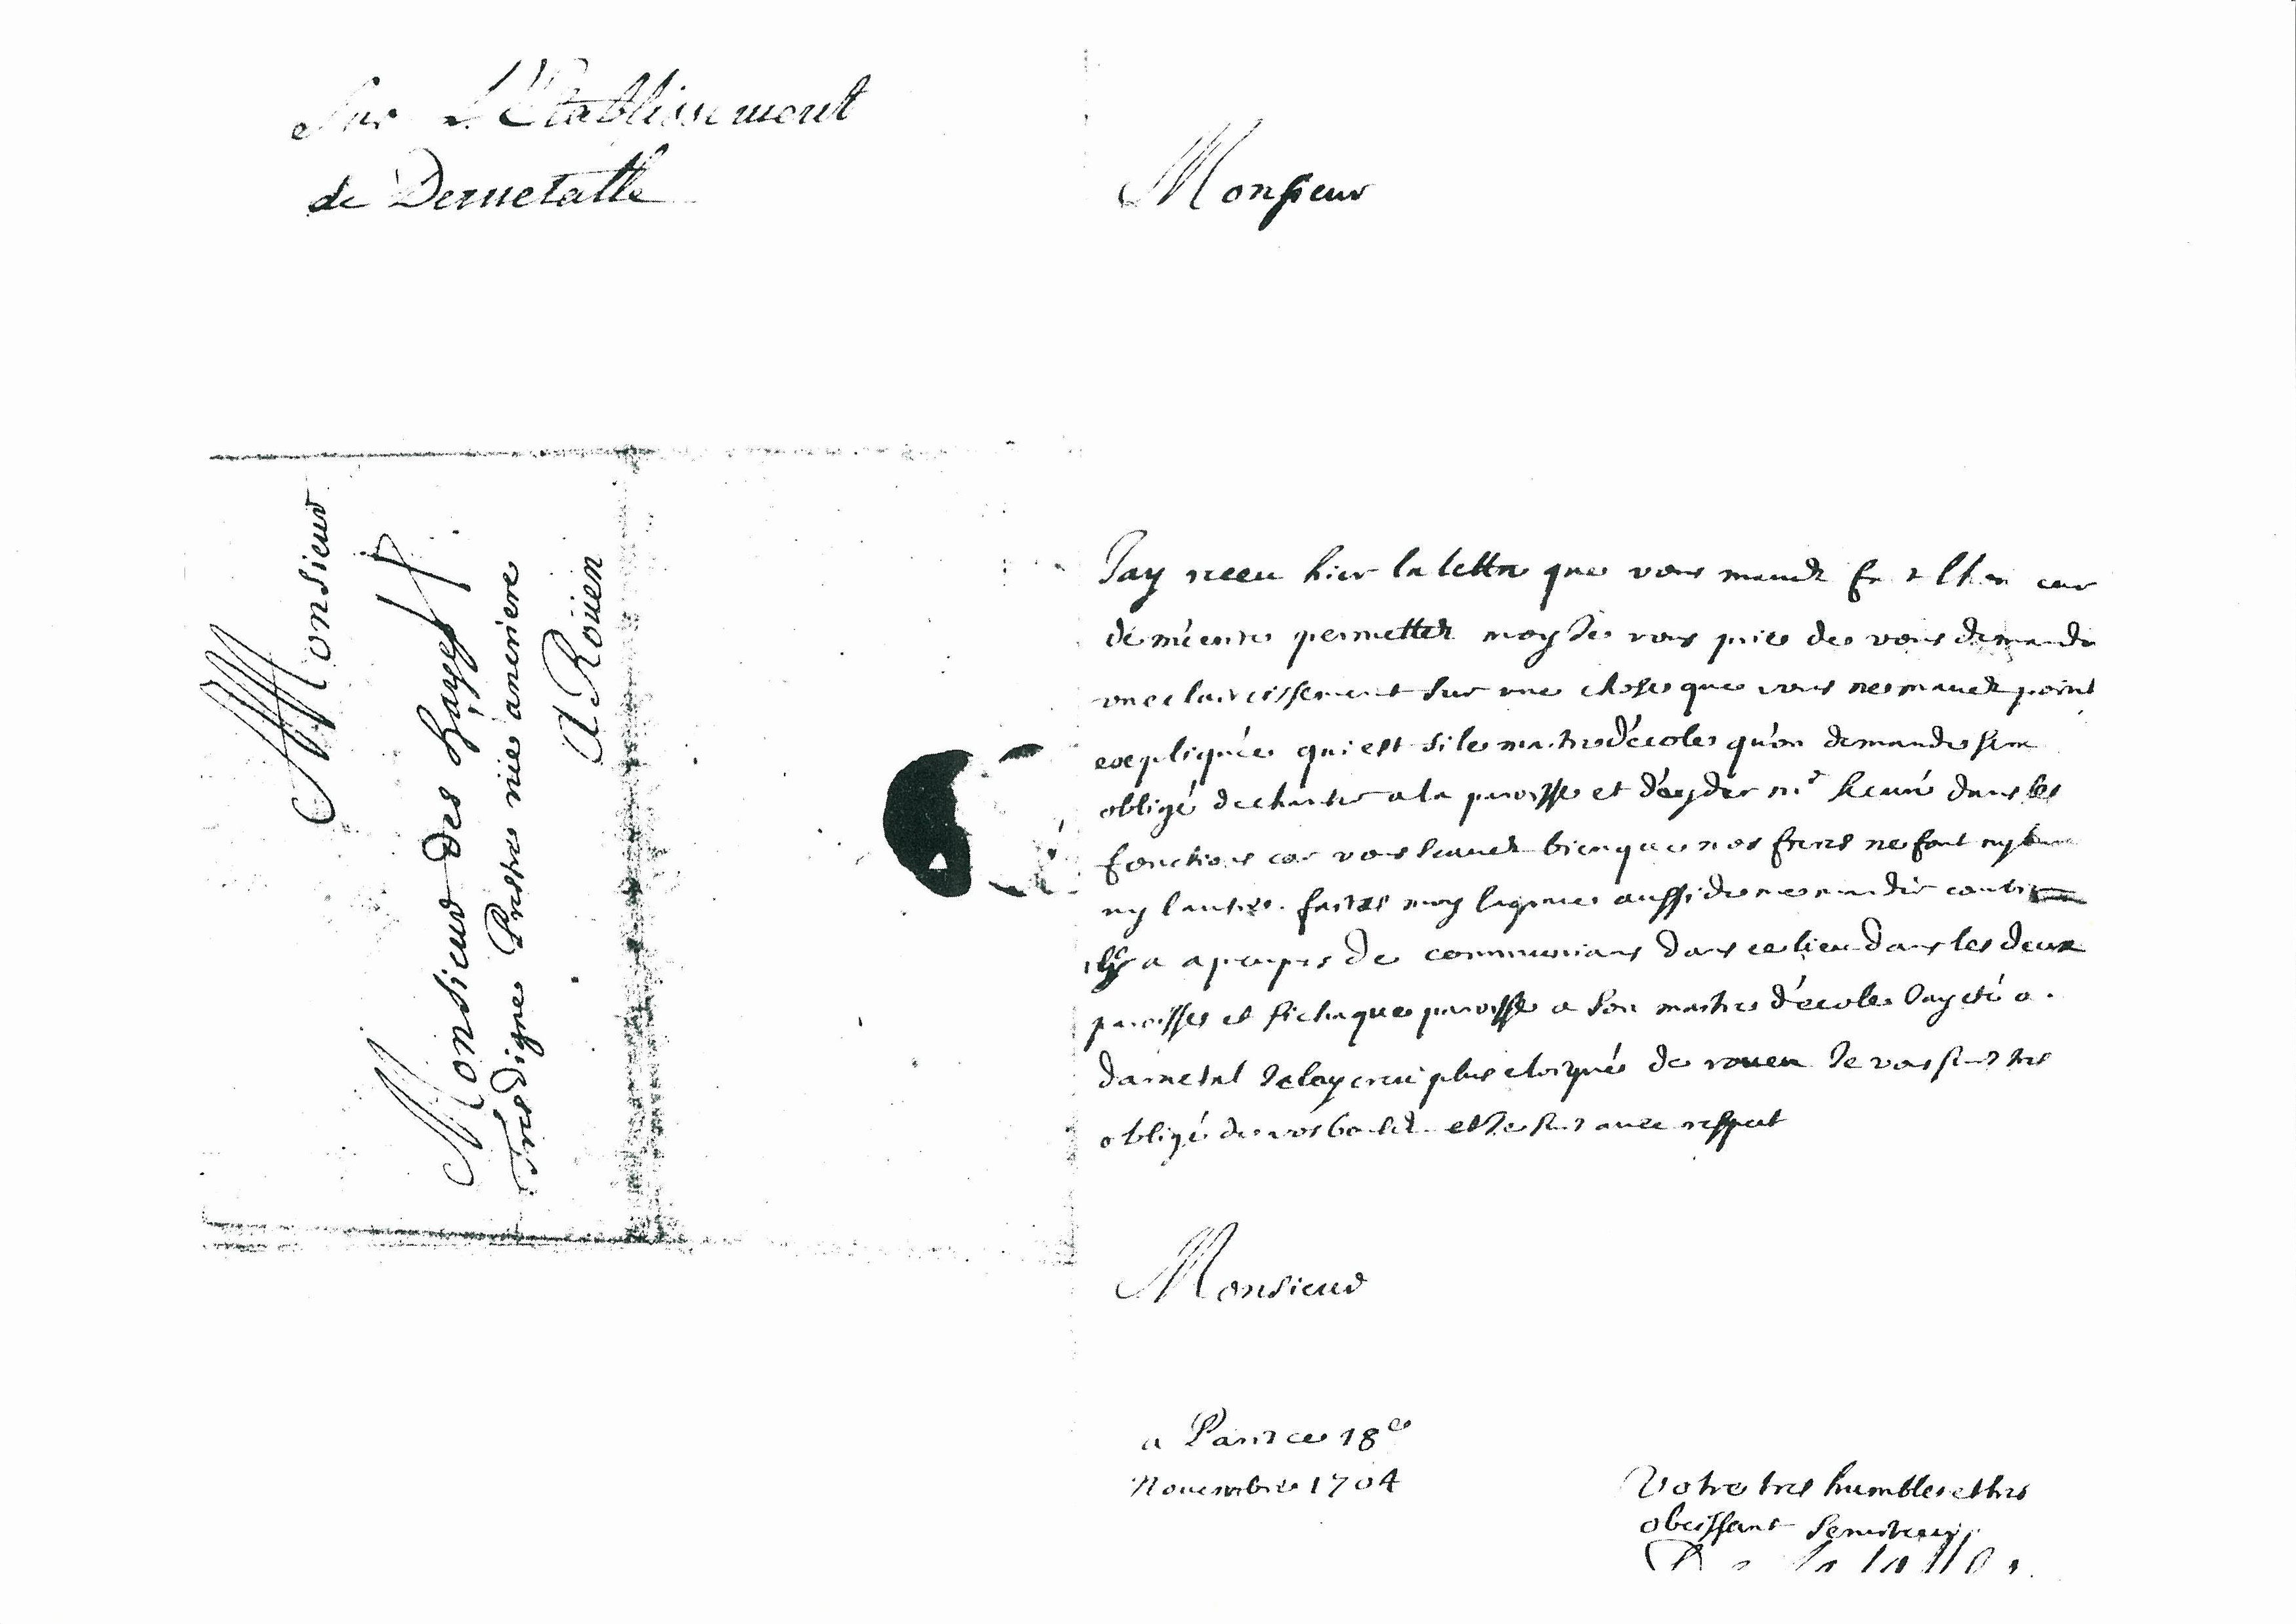 Sur L'Etablissement
de Dernetalle
Monsieur
Monsieur des hayes
Tres digne Prestre rüe anciriere
A Roüen
Monsieur
Jay receu hier la lettre que vous maués fait lhon eur
de m'ecrire permettez moy Je vous prie de vous demander
vn eclaircissement sur une chose que vous ne maués point
expliquée qui est si le maitre d'ecole qu'on demande sera
obligé de chanter a la paroisse et d'ayder mr le curé dans les
fonctions car vous scaués bien que nos freres ne font ny lun
ny lautre. faites moy la grace aussi de me mander combien
il y a a peu pres de communians dans ce lieu dans les deux
paroisses et si chaque paroisse a son maitre d'ecole Jay eté a
darnetal Je lay creu plus eloigné de rouen Je vous suis tres
obligé de vos bontés et Je suis auec respect
Monsieur
a Paris ce 18e
Nouembre 1704
Votre tres humble et tres
obeissant seruiteur
De la salle